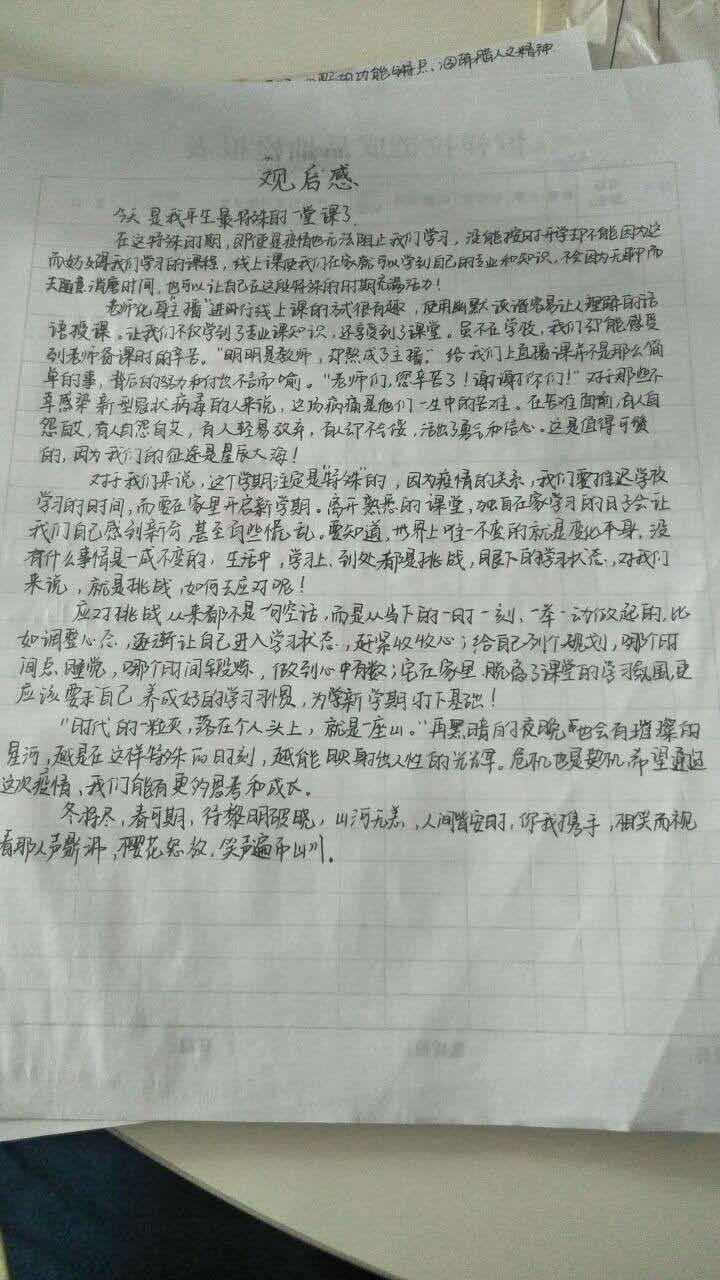 功能与特点、
人之精神
观后感
今天是我平生最特殊的一堂课了
在这特殊的时期，即便是疫情也无法阻止我们学习，没能按时开学却不能因为这
而妨碍我们学习的课程，线上课使我们在家就可以学到自己的专业和知识，不会因为无聊而
去随意消磨时间，也可以让自己在这段特殊的时期充满活力！
老师化身"主播"进行线上课的方式很有趣，使用幽默诙谐容易让人理解的话
语授课。让我们不仅学到了专业课知识，还享受到了课堂。虽不在学校，我们却能感受
到老师备课时的辛苦。"明明是教师，却熬成了主播"给我们上直播课并不是那么简
单的事，背后的努力和付出不言而喻。"老师们，您辛苦了！谢谢你们！"对于那些不
幸感染新型冠状病毒的人来说，这场病痛是他们一生中的苦难。在苦难面前，有人自
怨自艾，有人自怨自艾，有人轻易放弃，有人却不会，活出了勇气和信心。这是值得可赞
的，因为我们的征途是星辰大海！
对于我们来说，这个学期注定是"特殊"的，因为疫情的关系，我们要推迟学校
学习的时间，而要在家里开启新学期。离开熟悉的课堂，独自在家学习的日子会让
我们自己感到新奇，甚至有些慌乱。要知道，世界上唯一不变的就是变化本身，没
有什么事情是一成不变的，生活中，学习上，到处都是挑战，眼下的学习状态，对我们
来说，就是挑战，如何去应对呢！
应对挑战从来都不是一句空话，而是从当下的一时一刻、一举一动做起的，比
如调整心态，逐渐让自己进入学习状态，赶紧收收心；给自己列个规划，哪个时
间点睡觉，哪个时间段锻炼，做到心中有数；宅在家里，脱离了课堂的学习氛围，更
应该要求自己养成好的学习习惯，为学新学期打下基础！
"时代的一粒灰，落在个人头上，就是一座山。"再黑暗的夜晚也会有璀璨的
星河，越是在这样特殊的时刻，越能映射出人性的光辉。危机也是契机，希望通过
这次疫情，我们能有更多思考和成长。
冬将尽，春可期，待黎明破晓，山河无恙，人间皆安时，你我携手，相笑而视
看那人声鼎沸，樱花怒放，笑声遍布山川。